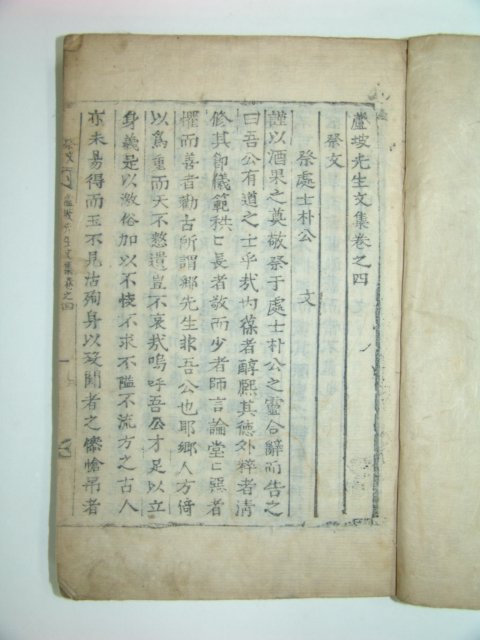 蘆坡先生文集卷之四
祭文
祭處士朴公文
謹以酒果之奠敬祭于處士朴公之靈合辭而告之
曰吾公有道之士乎哉內葆者醇熙其德外粹者清
修其節儀範秩〻長者敬而少者師言論堂〻惡者
懼而善者勸古所謂鄕先生非吾公也耶鄕人方倚
以爲重而天不憖遺豈不哀哉嗚呼吾公才足以立
身義是以激俗加以不忮不求不隘不流方之古人
亦未易得而玉不見沽殉身以歿聞者之傷愴吊者
蘆坡先生文集卷之四
一